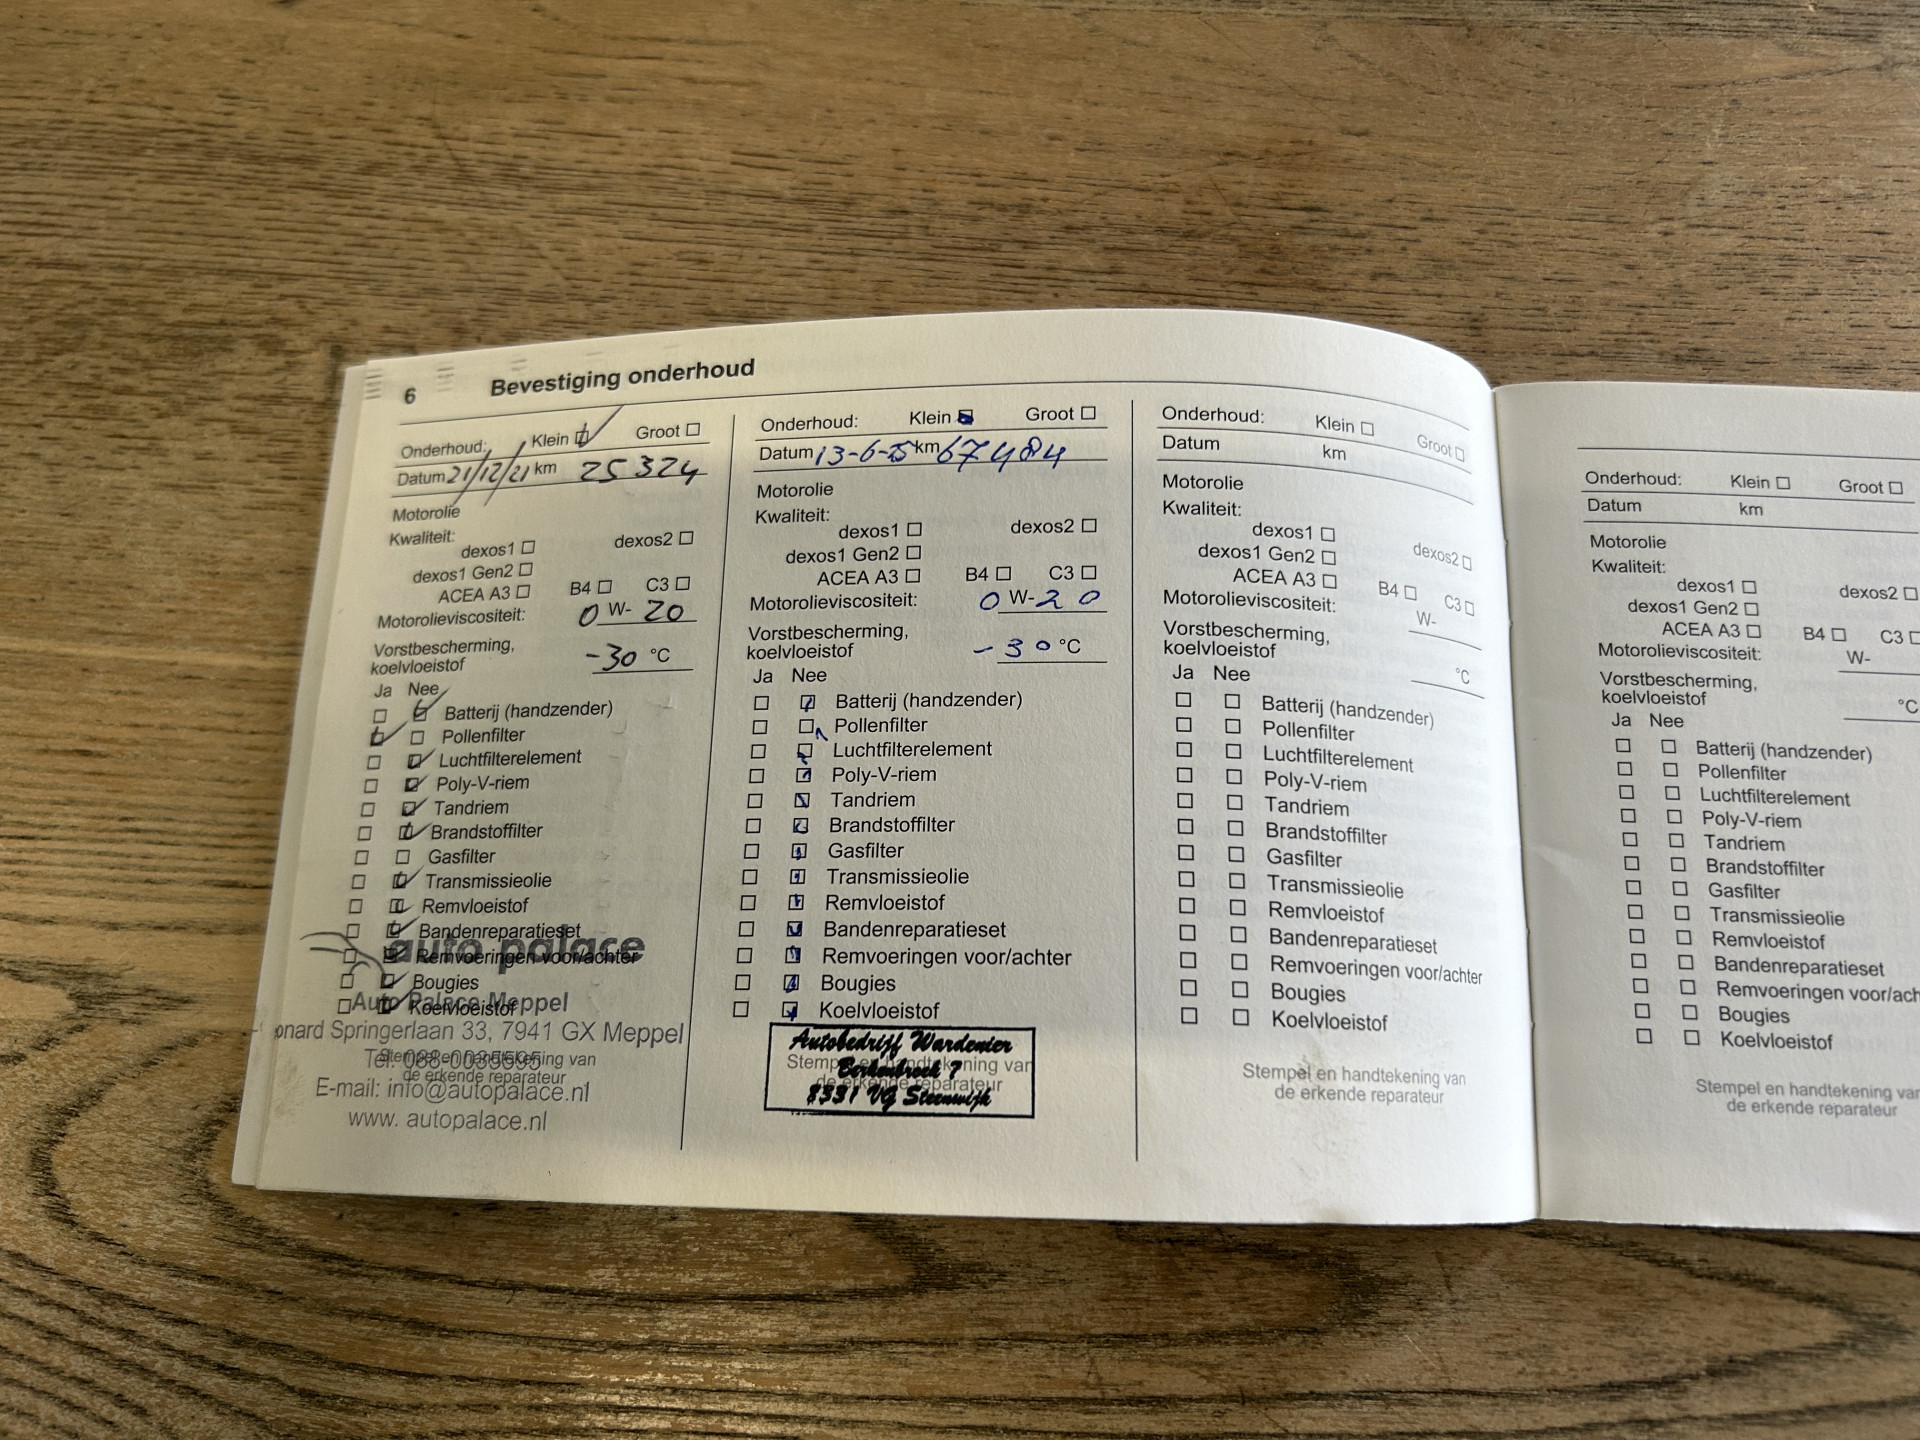 6 Bevestiging onderhoud
Onderhoud: Klein Groot
Datum 21/12/21 km 25 324
Motorolie
Kwaliteit:
dexos1 dexos2
dexos1 Gen2
ACEA A3 B4 C3
Motorolieviscositeit: 0 W- 20
Vorstbescherming,
koelvloeistof -30 °C
Ja Nee
Batterij (handzender)
Pollenfilter
Luchtfilterelement
Poly-V-riem
Tandriem
Brandstoffilter
Gasfilter
Transmissieolie
Remvloeistof
Bandenreparatieset
auto palace
Remvoeringen voor/achter
Bougies
Auto Palace Meppel
Koelvloeistof
onard Springerlaan 33, 7941 GX Meppel
Stempel en handtekening van
Tel: 088-0035595
de erkende reparateur
E-mail: info@autopalace.nl
www. autopalace.nl
Onderhoud: Klein Groot
Datum 13-6-25 km 67484
Motorolie
Kwaliteit:
dexos1 dexos2
dexos1 Gen2
ACEA A3 B4 C3
Motorolieviscositeit: 0 W- 20
Vorstbescherming,
koelvloeistof -30 °C
Ja Nee
Batterij (handzender)
Pollenfilter
Luchtfilterelement
Poly-V-riem
Tandriem
Brandstoffilter
Gasfilter
Transmissieolie
Remvloeistof
Bandenreparatieset
Remvoeringen voor/achter
Bougies
Koelvloeistof
Autobedrijf Wardenier
Stempel en handtekening van
Berkenbroek 7
de erkende reparateur
8331 VG Steenwijk
Onderhoud: Klein Groot
Datum km
Motorolie
Kwaliteit:
dexos1 dexos2
dexos1 Gen2
ACEA A3 B4 C3
Motorolieviscositeit: W-
Vorstbescherming,
koelvloeistof °C
Ja Nee
Batterij (handzender)
Pollenfilter
Luchtfilterelement
Poly-V-riem
Tandriem
Brandstoffilter
Gasfilter
Transmissieolie
Remvloeistof
Bandenreparatieset
Remvoeringen voor/achter
Bougies
Koelvloeistof
Stempel en handtekening van
de erkende reparateur
Onderhoud: Klein Groot
Datum km
Motorolie
Kwaliteit:
dexos1 dexos2
dexos1 Gen2
ACEA A3 B4 C3
Motorolieviscositeit: W-
Vorstbescherming,
koelvloeistof °C
Ja Nee
Batterij (handzender)
Pollenfilter
Luchtfilterelement
Poly-V-riem
Tandriem
Brandstoffilter
Gasfilter
Transmissieolie
Remvloeistof
Bandenreparatieset
Remvoeringen voor/ach
Bougies
Koelvloeistof
Stempel en handtekening van
de erkende reparateur